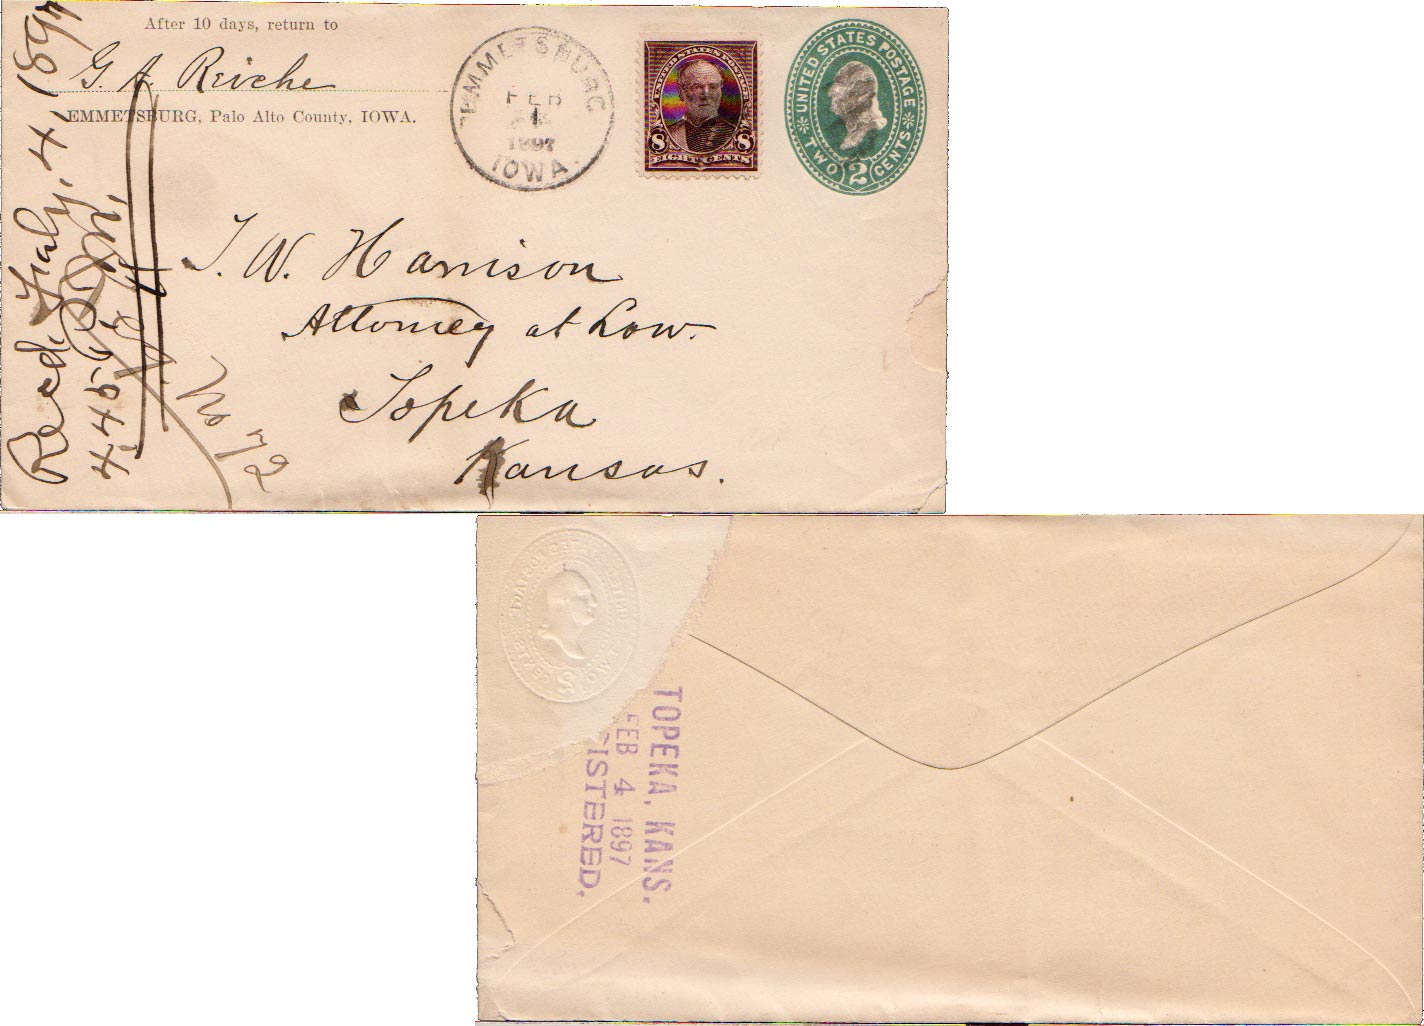 After 10 days, return to
G. A. Reiche
EMMETSBURG, Palo Alto County, IOWA.
EMMETSBURG
FEB
1897
IOWA.
UNITED STATES POSTAGE
8 8
EIGHT CENTS
UNITED STATES POSTAGE
TWO 2 CENTS
J. W. Harrison
Attorney at Law.
Topeka
Kansas.
Recd. 4, 1897
No 72
TOPEKA, KANS.
FEB 4 1897
ISTERED,